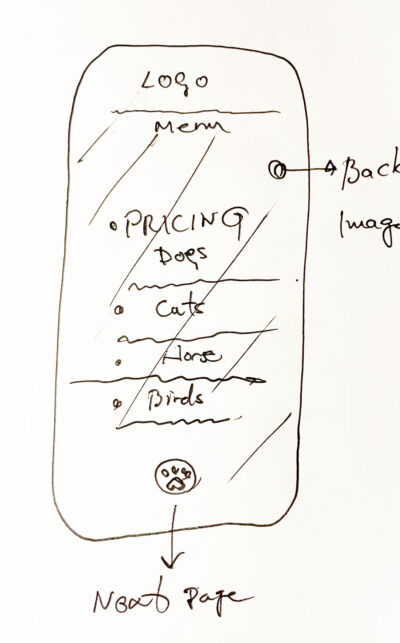 LOGO
Menu
Back
Image
PRICING
Dogs
Cats
Horse
Birds
Next Page